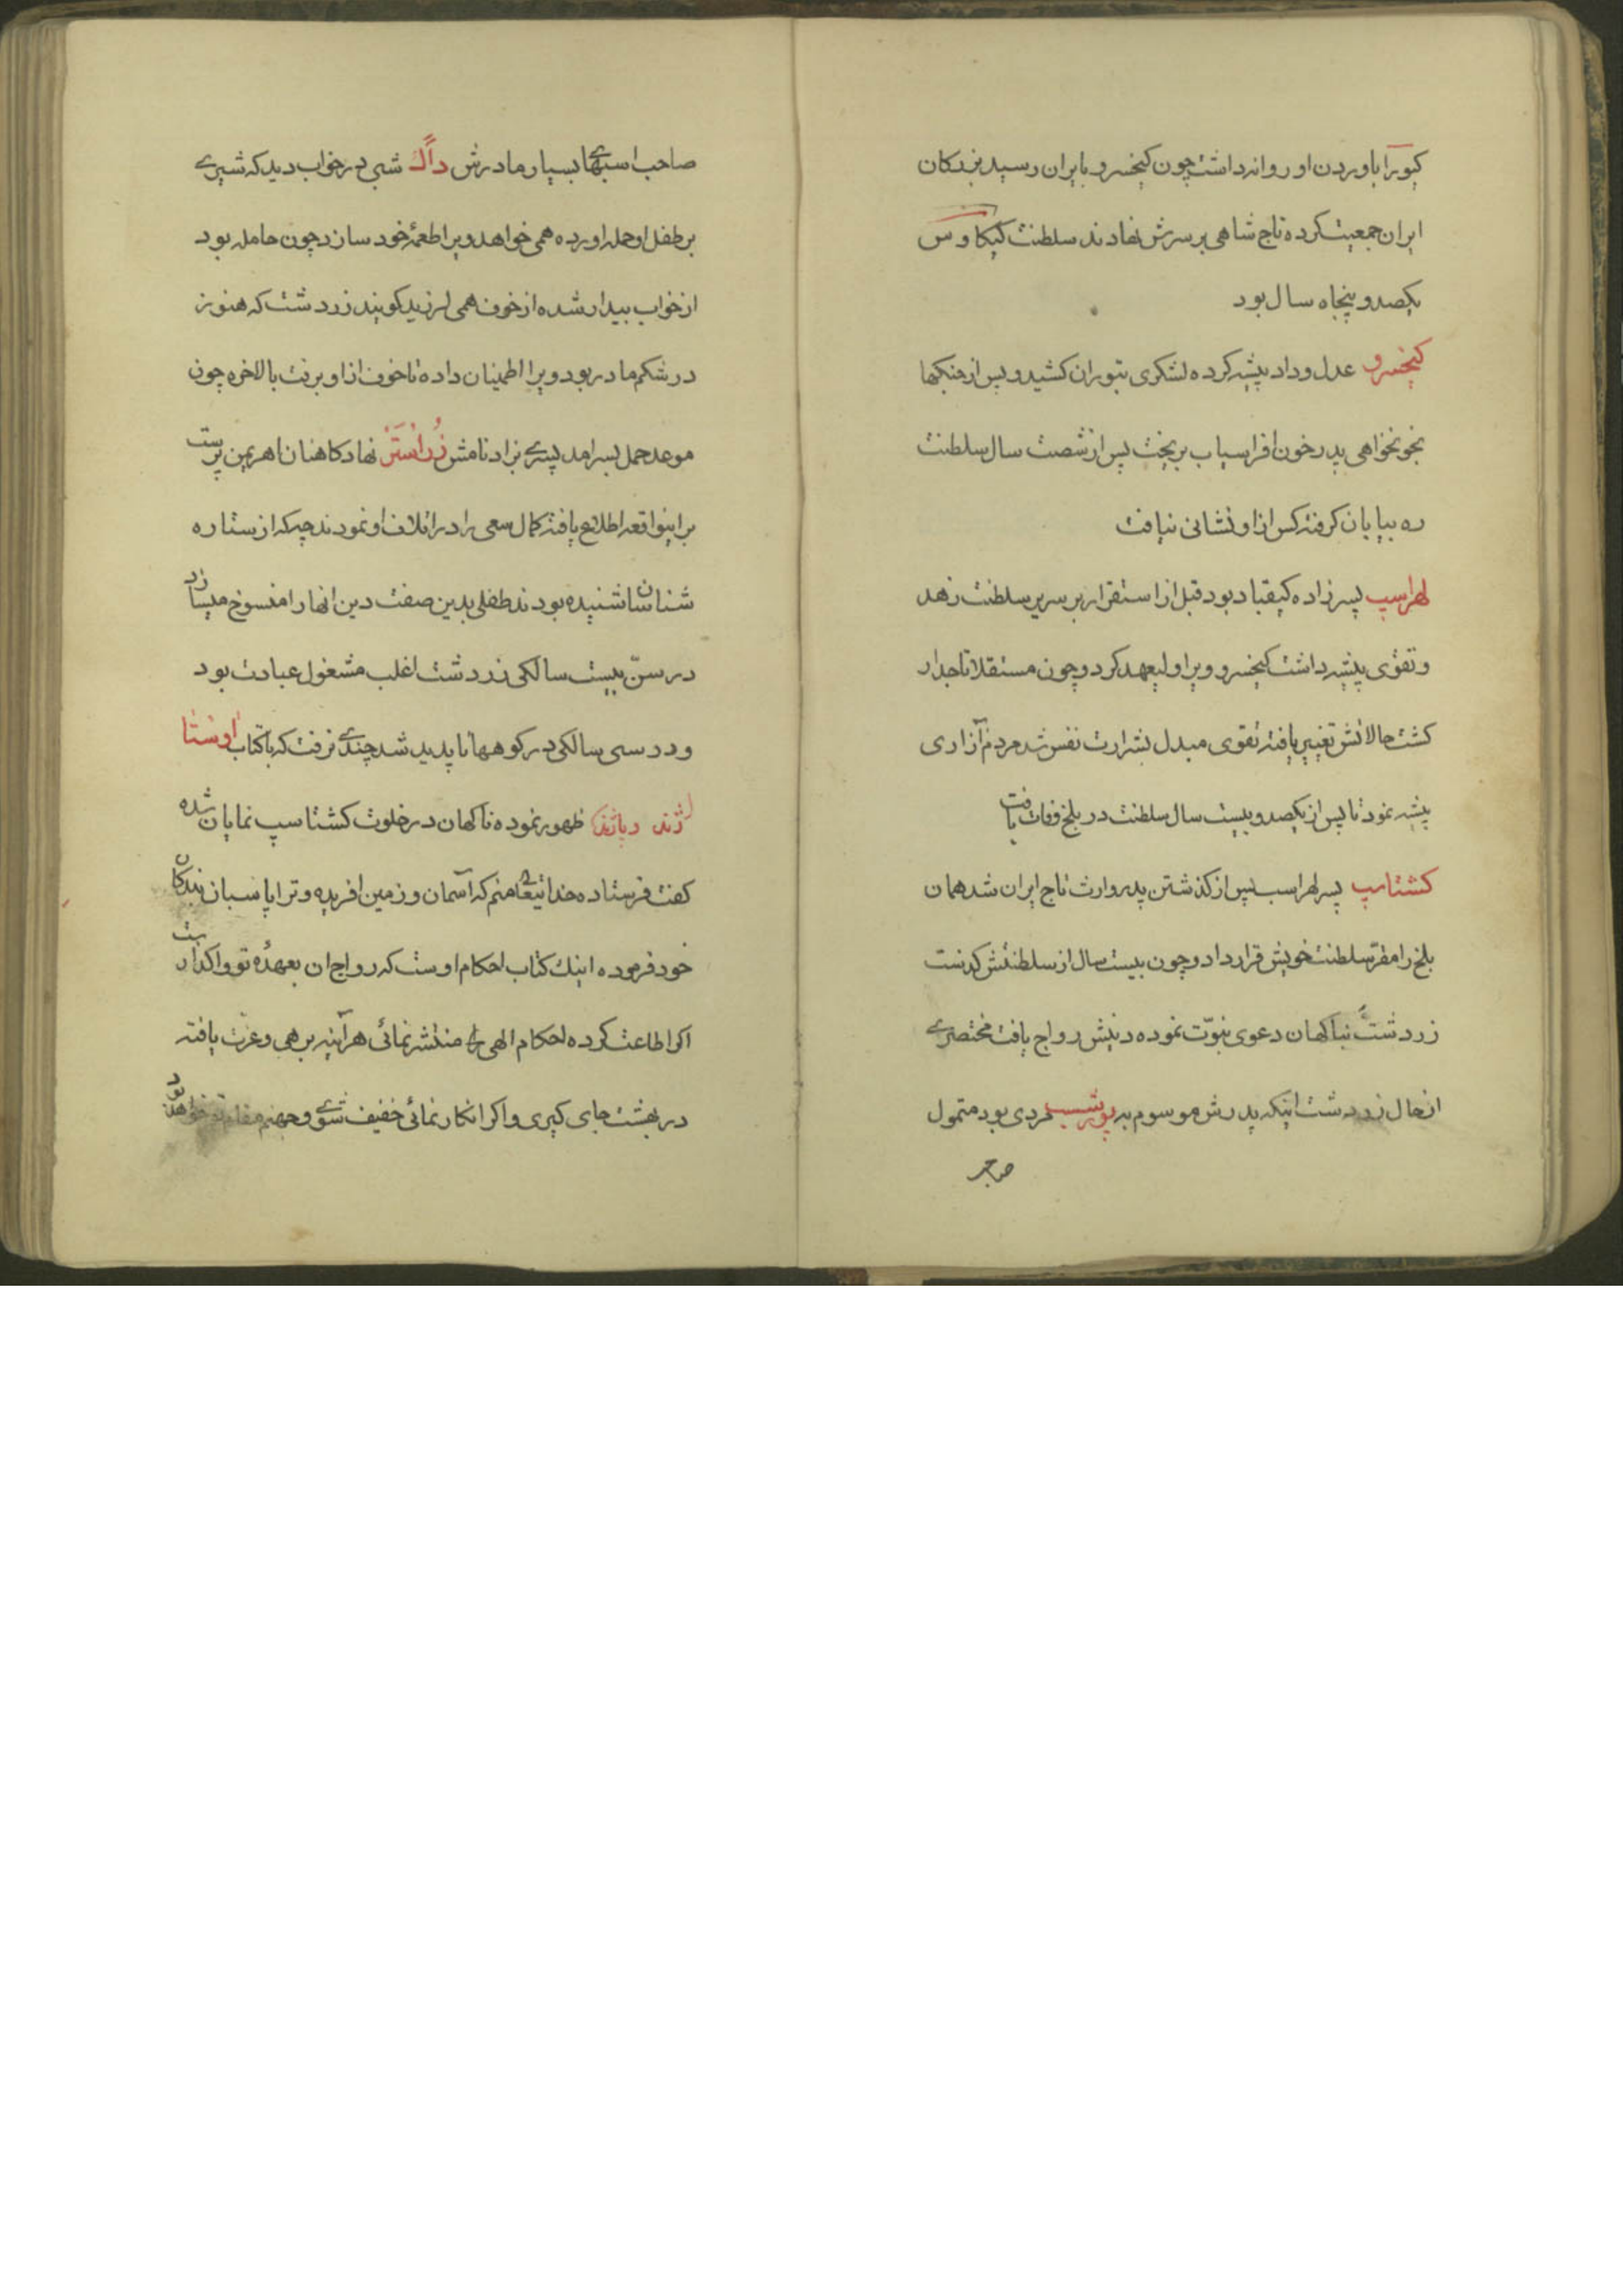 کیو را باوردن او روانه داشت چون کیخسرو بایران رسید بزرکان
ایران جمعیت کرده تاج شاهی بر سرش نهادند سلطنت کیکاوس
یکصد و پنجاه سال بود
کیخسرو عدل و داد پیشه کرده لشکری بتوران کشید و پس از جنکها
بخونخواهی پدر خون افراسیاب بریخت پس از شصت سال سلطنت
ره بیابان کرفته کس از او نشانی نیافت
لهراسپ پسرزاده کیقباد بود قبل از استقرار بر سریر سلطنت زهد
و تقوی پیشه داشت کیخسرو ویرا ولیعهد کرد و چون مستقلا تاجدار
کشت حالاتش تغییر یافته تقوی مبدل بشرارت نفس شد مردم آزاری
پیشه نمود تا پس از یکصد و بیست سال سلطنت در بلخ وفات یافت
کشتاسپ پسر لهراسب پس از کذشتن پدر وارث تاج ایران شد همان
بلخ را مقر سلطنت خویش قرار داد و چون بیست سال از سلطنتش کذشت
زردشت بناکهان دعوی نبوّت نموده دینش رواج یافت مختصری
از حال زردشت اینکه پدرش موسوم به پورشسب مردی بود متمول
صاحب
صاحب اسبهای بسیار مادرش داک شبی در خواب دید که شیری
بر طفل او حمله اورده همی خواهد ویرا طعمهٔ خود سازد چون حامله بود
از خواب بیدار شده از خوف همی لرزید کویند زردشت که هنوز
در شکم مادر بود ویرا اطمینان داده تا خوف از او برفت بالاخره چون
موعد حمل بسر امد پسری بزاد نامش زراستر نهاد کاهنان اهریمن پرست
بر اینواقعه اطلاع یافته کمال سعی را در اتلاف او نمودند چه که از ستاره
شناسان شنیده بودند طفلی بدین صفت دین انها را منسوخ میسازد
در سنّ بیست سالکی زردشت اغلب مشغول عبادت بود
و در سی سالکی در کوهها ناپدید شد چندی نرفت که با کتاب اوستا
ژند و پاژند ظهور نموده ناکهان در خلوت کشتاسپ نمایان شده
کفت فرستاده خدایتعالی منم که آسمان و زمین افریده و ترا پاسبان بندکان
خود فرموده اینک کتاب احکام اوست که رواج ان بعهدهٔ تو واکذارست
اکر اطاعت کرده احکام الهی را منتشر نمائی هرآینه برهی و عزت یافته
در بهشت جای کیری و اکر انکار نمائی خفیف شوی و جهنم مقام تو خواهد بود